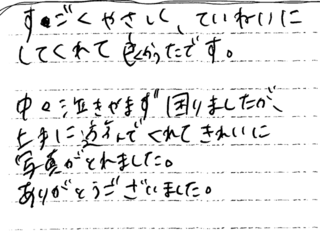 すごくやさしく、ていねいに
してくれて良かったです。
中々泣きやまず困りましたが、
上手に遊んでくれてきれいに
写真がとれました。
ありがとうございました。